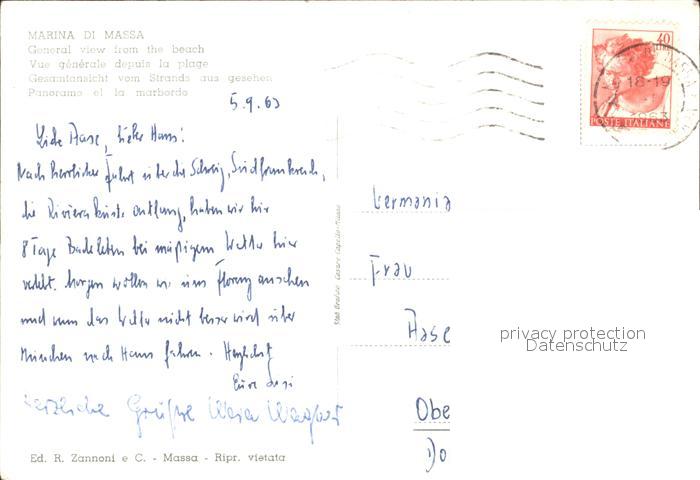 MARINA DI MASSA
General view from the beach
Vue générale depuis la plage
Gesamtansicht vom Strands aus gesehen
Panorama el la marbordo
5.9.63
Liebe Aase, lieber Hans!
Nach herrlicher Fahrt über die Schweiz, Südfrankreich,
die Riviera Küste entlang, haben wir hier
8 Tage Badeleben bei mäßigem Wetter hier
verlebt. Morgen wollen wir uns Florenz ansehen
und wenn das Wetter nicht besser wird über
München nach Haus fahren. Herzlichst
Eure
Herzliche Grüße
Ed. R. Zannoni e C. - Massa - Ripr. vietata
40
LIRE
POSTE ITALIANE
18-19
1963
Germania
Frau
Aase
Obe
Do
privacy protection
Datenschutz